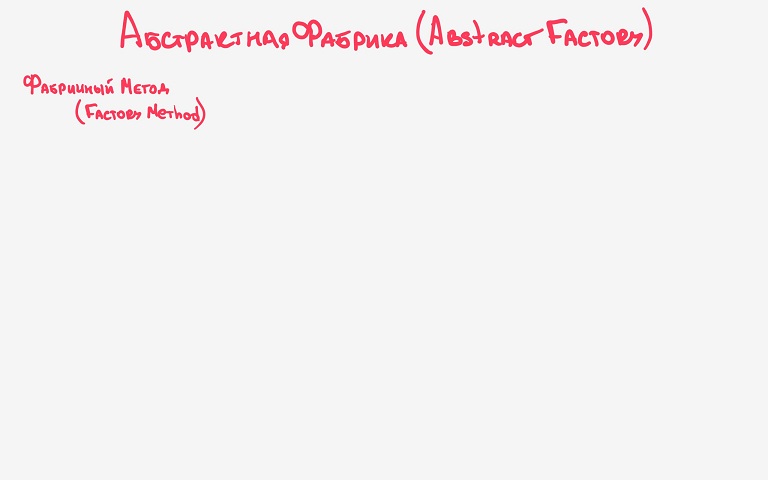 Абстрактная Фабрика (Abstract Factory)
Фабричный Метод
(Factory Method)